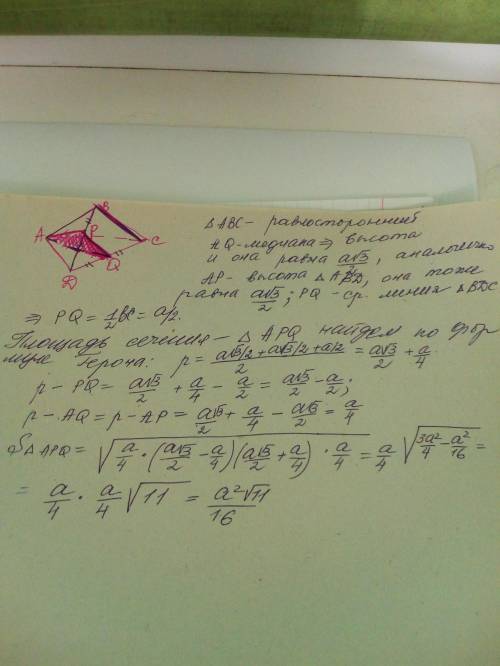 B
A P C
Q
D
△ABC - равносторонний
AQ-медиана ⇒ высота
и она равна a√3/2, аналогично
AP - высота △ABD, она тоже
равна a√3/2; PQ - ср. линия △BDC
⇒ PQ = 1/2 BC = a/2.
Площадь сечения - △APQ найдем по фор
муле Герона: p = (a√3/2 + a√3/2 + a/2)/2 = a√3/2 + a/4
p - PQ = a√3/2 + a/4 - a/2 = a√3/2 - a/2;
p - AQ = p - AP = a√3/2 + a/4 - a√3/2 = a/4
S△APQ = √(a/4 · (a√3/2 - a/4)(a√3/2 + a/4) · a/4) = a/4 √(3a²/4 - a²/16) =
= a/4 · a/4 √11 = a²√11/16